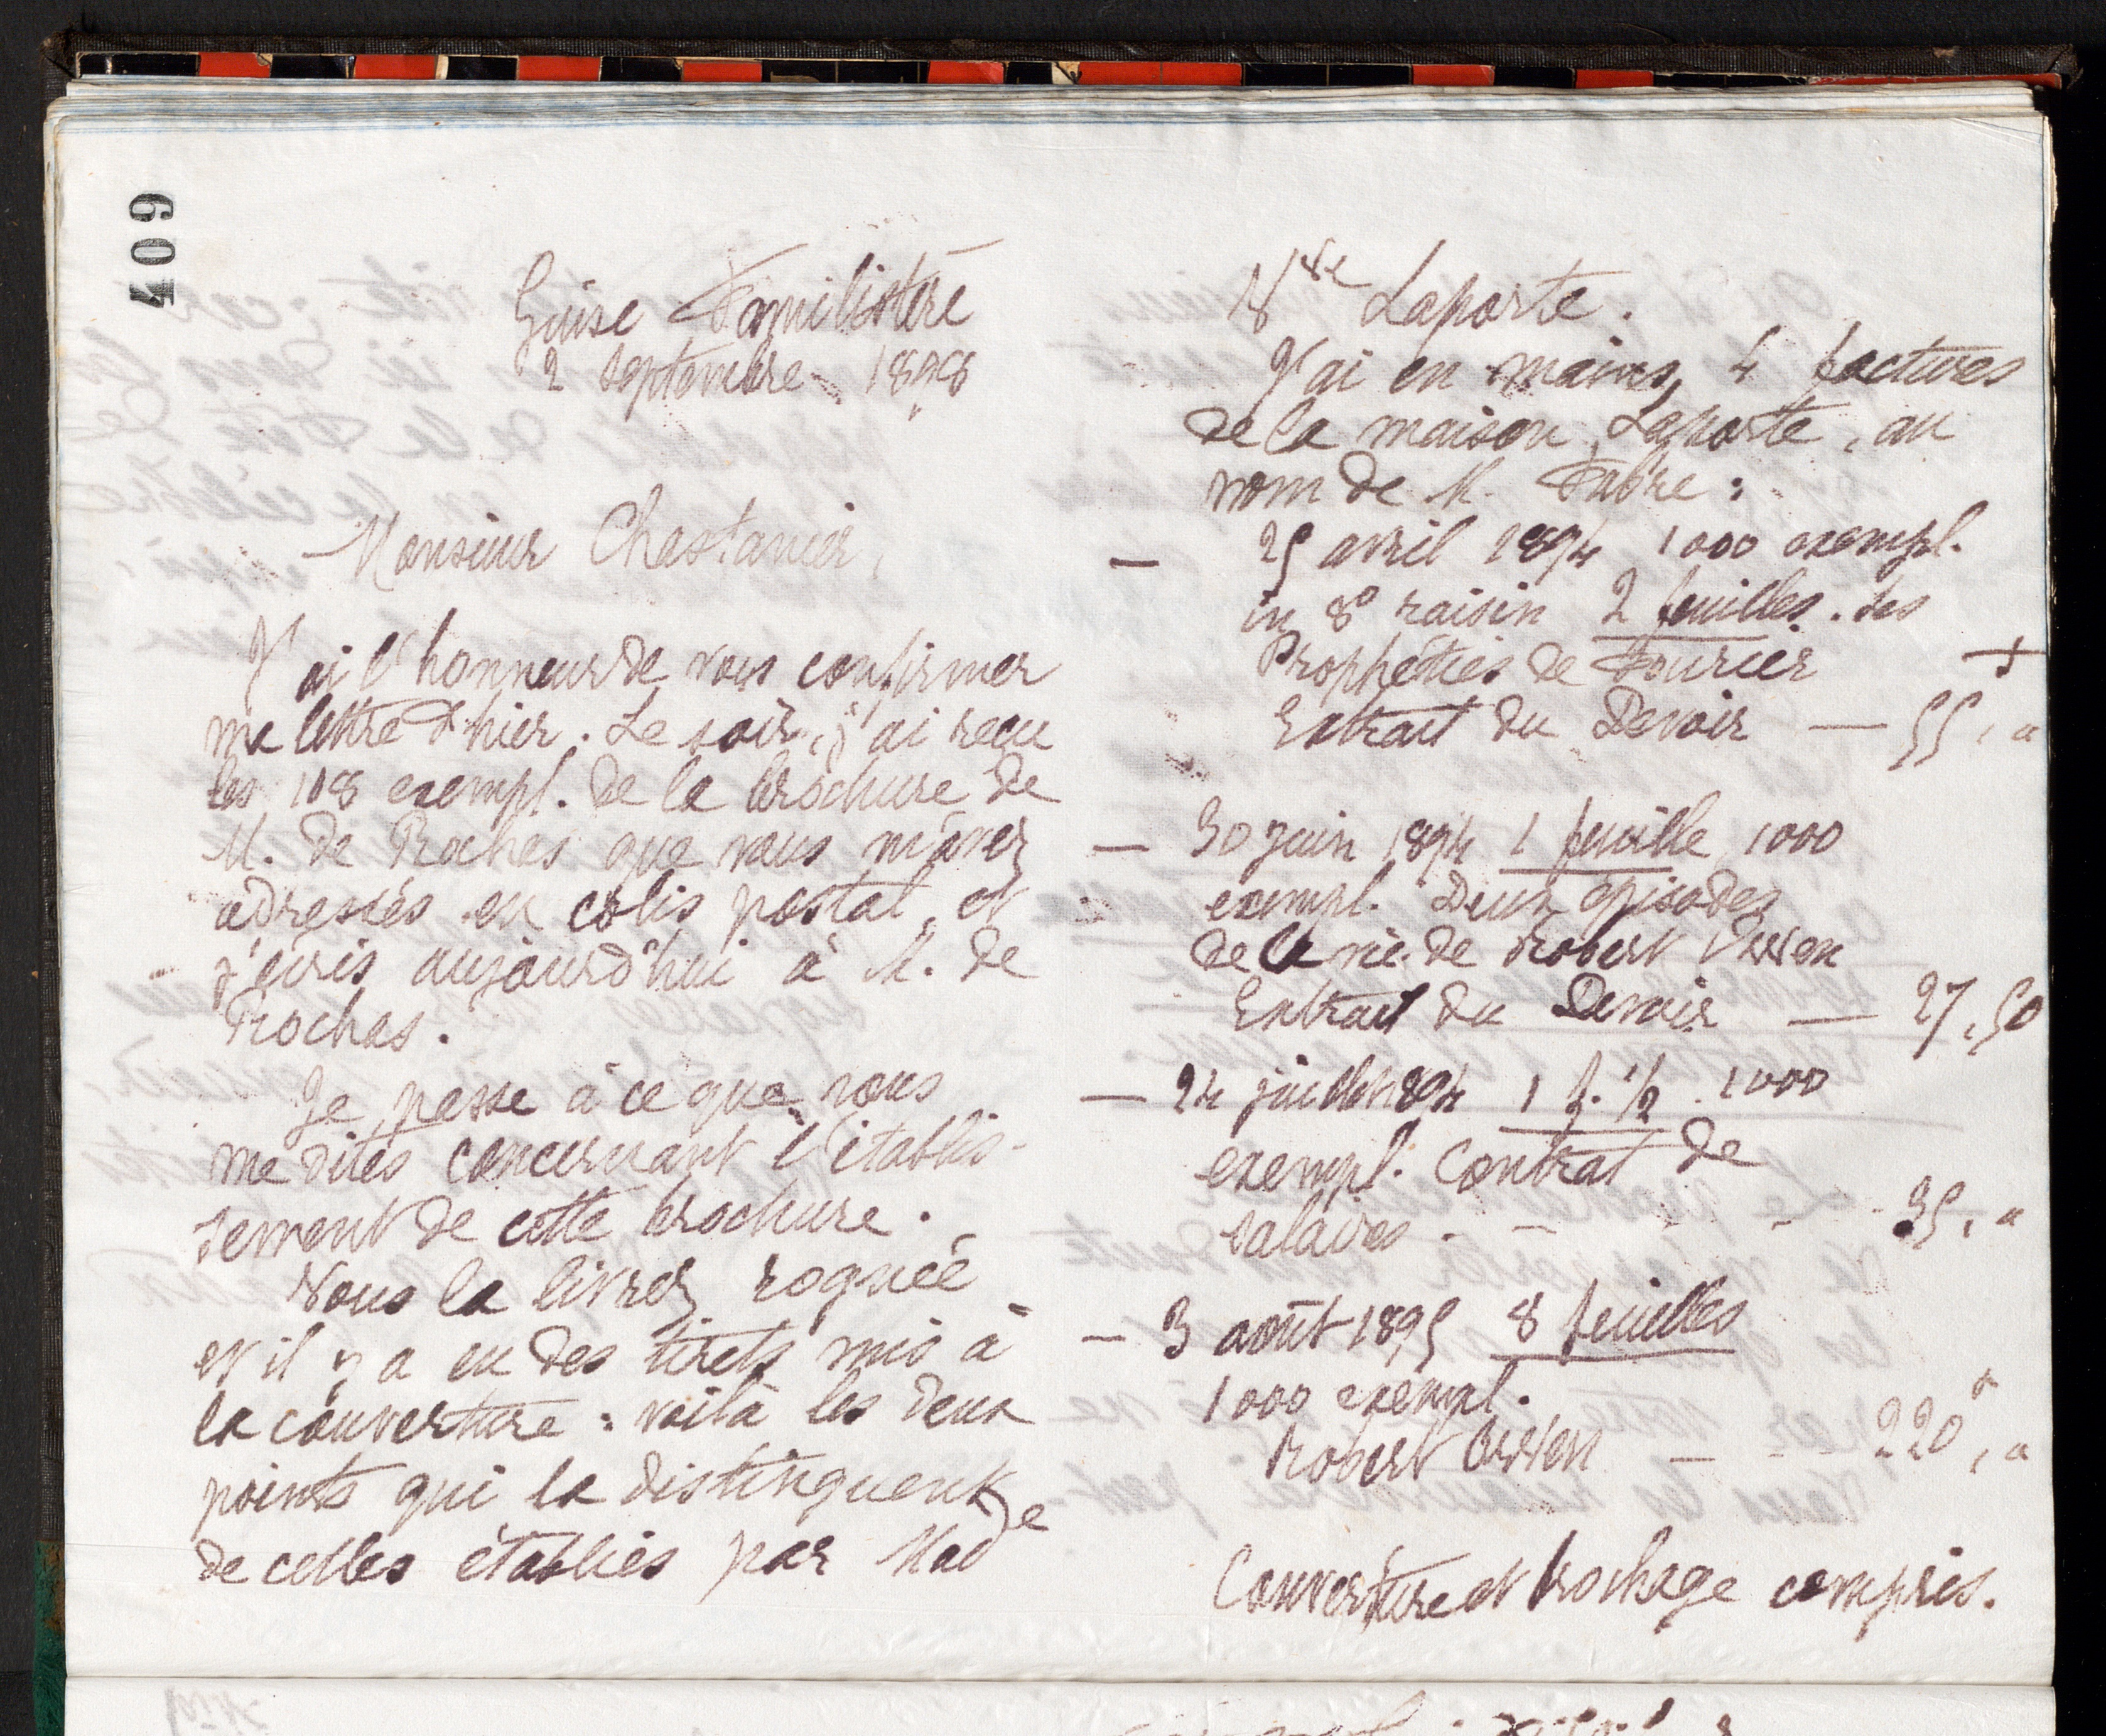 409
Guise Familistère
2 septembre 1898
Monsieur Chastanier,
J'ai l'honneur de vous confirmer
ma lettre d'hier. Le soir, j'ai reçu
les 108 exempl. de la brochure de
M. de Rochas que vous m'avez
adressés en colis postal, et
j'écris aujourd'hui à M. de
Rochas.
Je passe à ce que vous
me dites concernant l'établis-
sement de cette brochure.
Vous la livrez rognée
et il y a eu des tirets mis à
la couverture : voilà les deux
points qui la distinguent
de celles établies par Mad^e
V^ve Laporte.
J'ai en mains, 4 factures
de la maison Laporte, au
nom de M. Fabre :
— 25 avril 1894 1000 exempl.
in 8° raisin 2 feuilles. Les
Prophéties de Fourier +
Extrait du Devoir — 55, "
— 30 juin 1894 1 feuille 1000
exempl. Deux épisodes
de la vie de Robert Owen
Extrait du Devoir — 27,50
— 24 juillet 1894 1 f. 1/2. 1000
exempl. Contrat de
salaires. - - - 35, "
— 3 août 1895 8 feuilles
1000 exempl.
Robert Owen — - 220, "
Couverture et brochage compris.